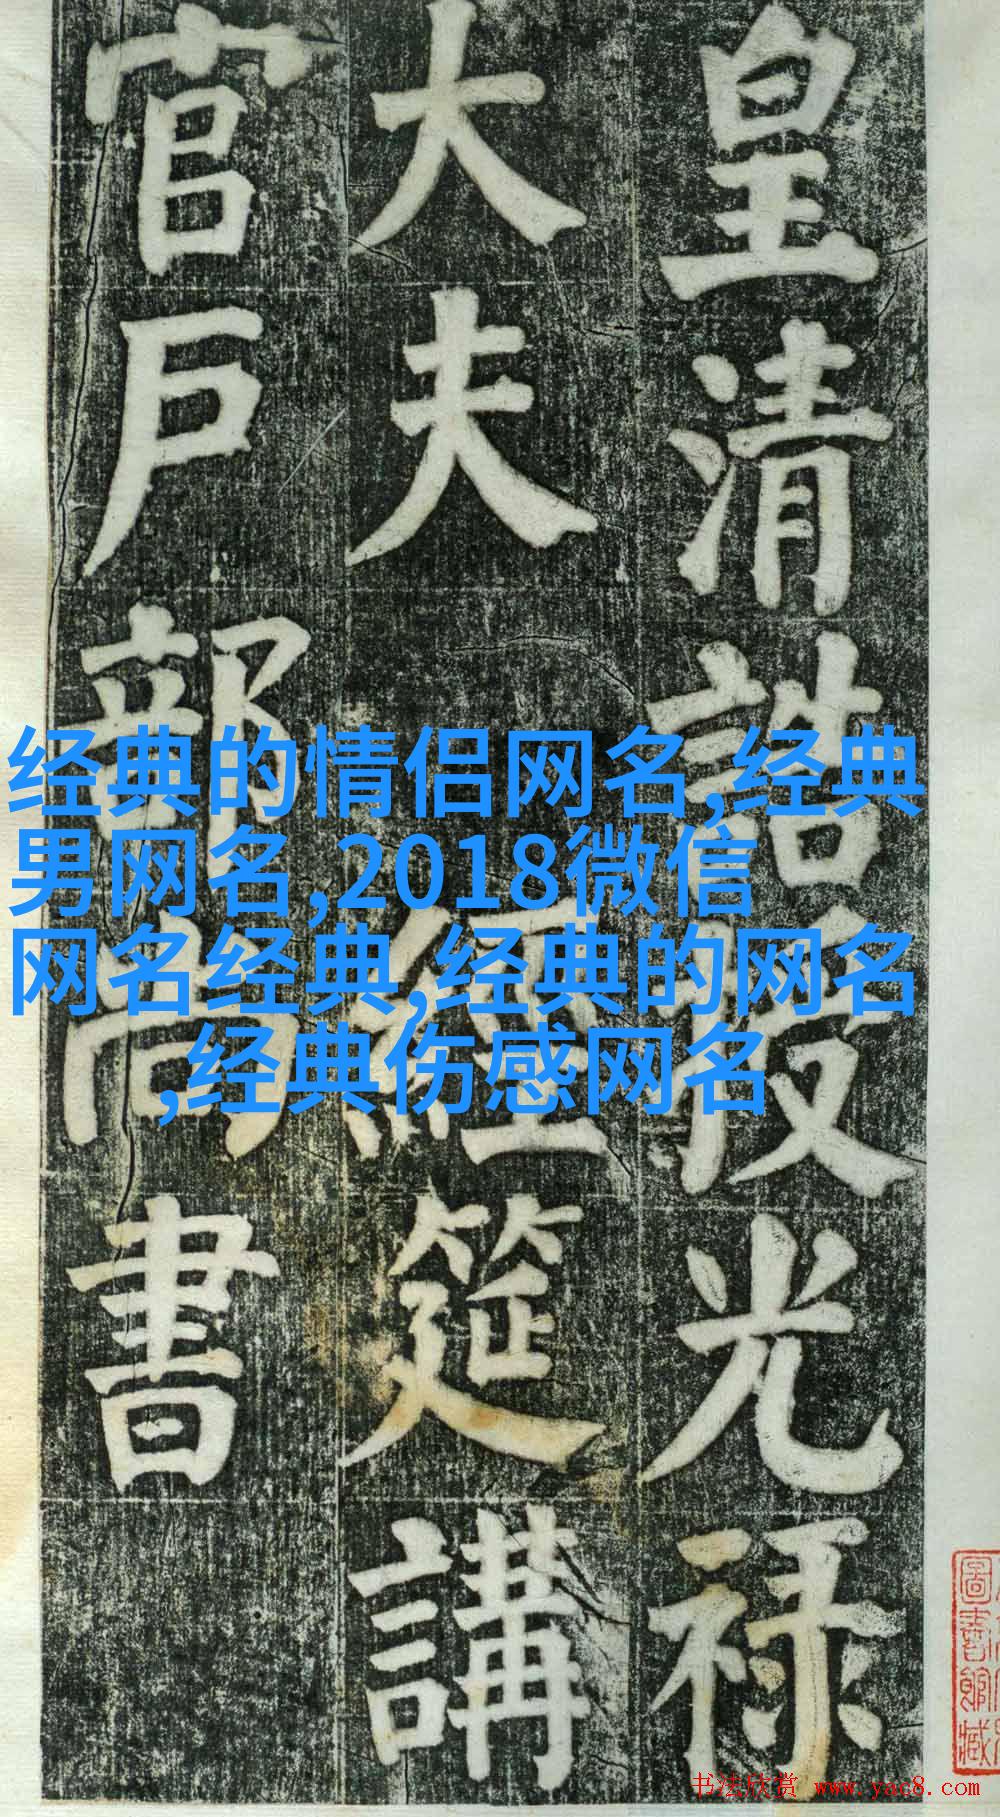 皇清誥授光禄
大夫經筵講
官戶部尚書
经典的情侣网名,经典
男网名,2018微信
网名经典,经典的网名
,经典伤感网名
圖書館藏
书法欣赏 www.yac8.com